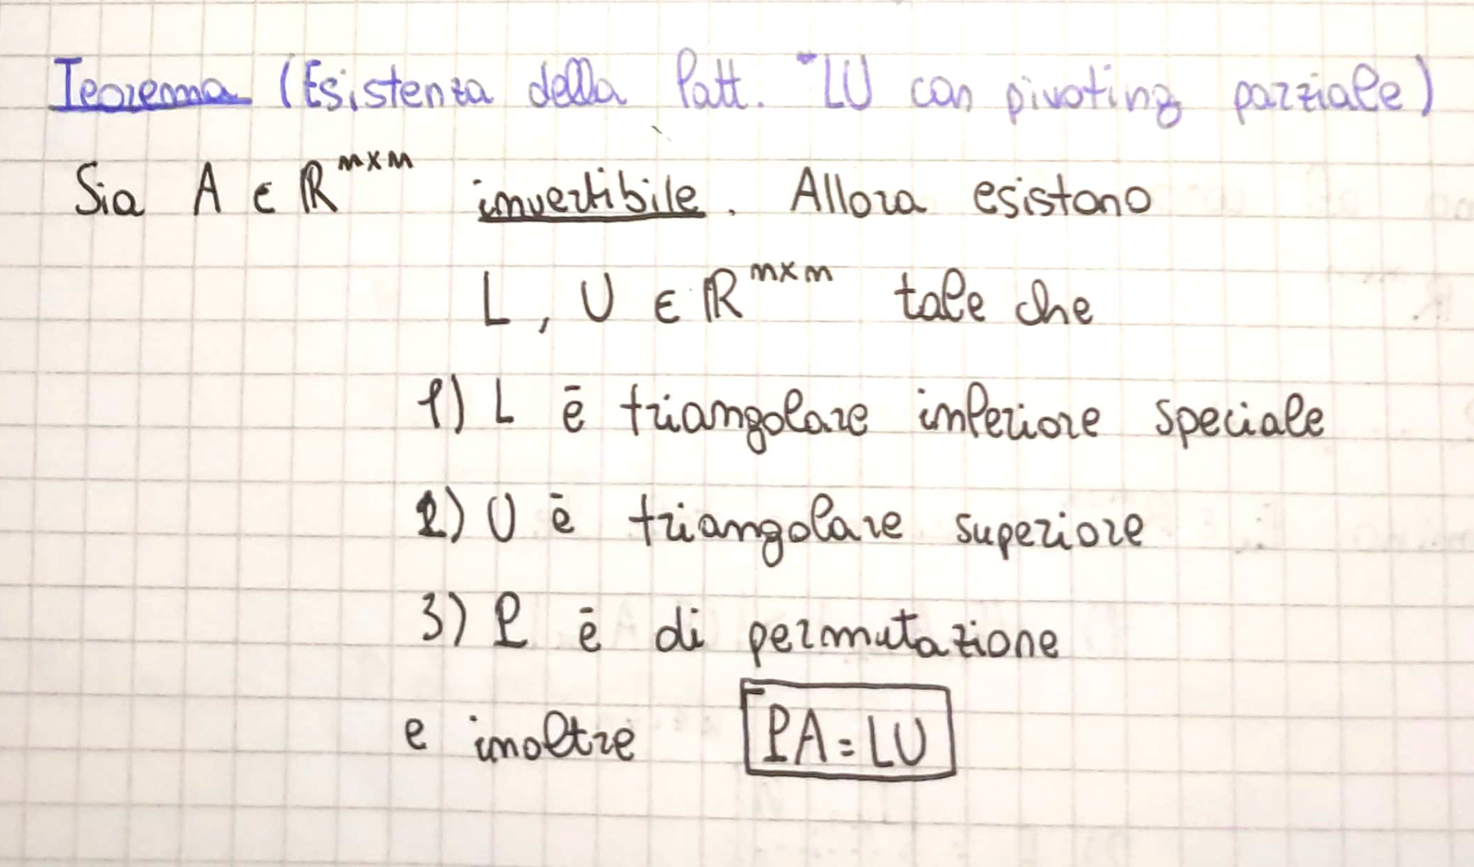 Teorema (Esistenza della fatt. LU con pivoting parziale)
Sia A ∈ ℝⁿˣⁿ invertibile. Allora esistono
L, U ∈ ℝⁿˣⁿ tale che
1) L è triangolare inferiore speciale
2) U è triangolare superiore
3) P è di permutazione
e inoltre PA = LU